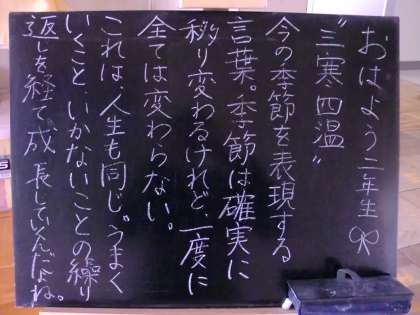 おはよう二年生
"三寒四温"
今の季節を表現する
言葉。季節は確実に
移り変わるけれど、一度に
全ては変わらない。
これは、人生も同じ。うまく
いくこと、いかないことの繰り
返しを経て成長していくんだよね。